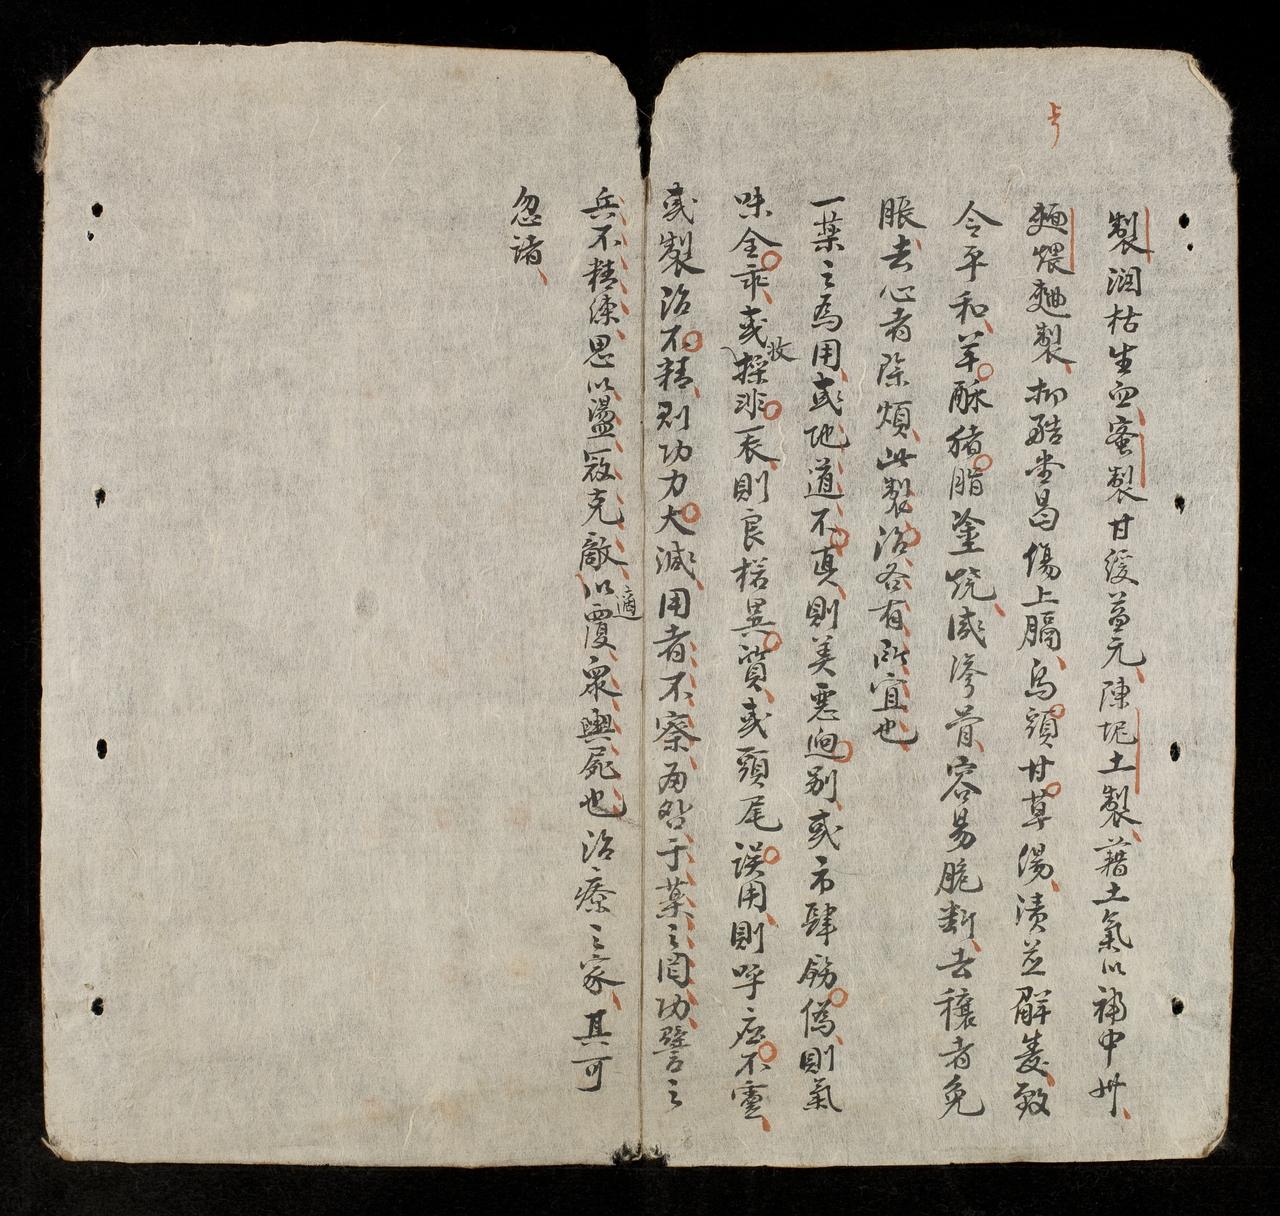 製潤枯生血蜜製甘緩益元陳坭土製藉土氣以補中州
麵煨麯製抑酷令曷傷上膈烏頭甘草湯漬並解毒致
令平和羊酥猪脂塗燒咸滲骨容易脆斷去穰者免
脹去心者除煩此製治各有所宜也
一葉之為用或地道不真則美惡逈别或市肆餙偽則氣
味全乖或採收非辰則良楛異質或頭尾誤用則呼应不靈
或製治不精則功力大減用者不察而咎于葉之罔功譬之
兵不精練思以盪寇克敵適以覆衆輿屍也治療之家其可
忽諸